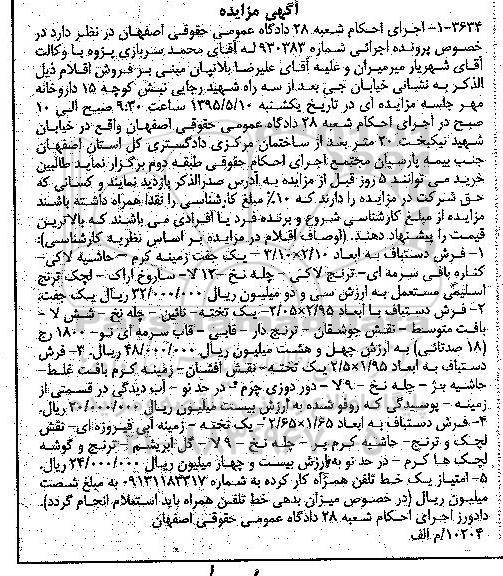 آگهی مزایده
۳۶۳۴-۱- اجرای احکام شعبه ۲۸ دادگاه عمومی حقوقی اصفهان در نظر دارد در
خصوص پرونده اجرائی شماره ۹۳۰۳۸۳ له آقای محمد سربازی پژوه با وکالت
آقای شهریار میرمیران و علیه آقای علیرضا بلانیان مبنی بر فروش اقلام ذیل
الذکر به نشانی خیابان جی بعد از سه راه شهید رجایی نبش کوچه ۱۵ داروخانه
مهر جلسه مزایده ای در تاریخ یکشنبه ۱۳۹۵/۵/۱۰ ساعت ۹:۳۰ صبح الی ۱۰
صبح در اجرای احکام شعبه ۲۸ دادگاه عمومی حقوقی اصفهان واقع در خیابان
شهید نیکبخت ۲۰ متر بعد از ساختمان مرکزی دادگستری کل استان اصفهان
جنب بیمه پارسیان مجتمع اجرای احکام حقوقی طبقه دوم برگزار نماید طالبین
خرید می توانند ۵ روز قبل از مزایده به آدرس صدرالذکر بازدید نمایند و کسانی که
حق شرکت در مزایده را دارند که ۱۰٪ مبلغ کارشناسی را نقدا همراه داشته باشند
مزایده از مبلغ کارشناسی شروع و برنده فرد یا افرادی می باشند که بالاترین
قیمت را پیشنهاد دهند. (اوصاف اقلام در مزایده بر اساس نظریه کارشناسی):
۱- فرش دستباف به ابعاد ۲/۱۰×۳/۱۰ - یک جفت زمینه کرم - حاشیه لاکی-
کناره بافی سرمه ای- ترنج لاکی - چله نخ -۱۲ لا- ساروخ اراک - لچک ترنج
اسلیمی مستعمل به ارزش سی و دو میلیون ریال ۳۲/۰۰۰/۰۰۰ ریال یک جفت.
۲- فرش دستباف با ابعاد ۲/۹۵×۲/۰۵- یک تخته- نائین - چله نخ - شش لا -
بافت متوسط - نقش جوشقان - ترنج دار - قابی - قاب سرمه ای نو- ۱۸۰۰ رج
(۱۸ صدتائی) به ارزش چهل و هشت میلیون ریال ۴۸/۰۰۰/۰۰۰ ریال. ۳- فرش
دستباف به ابعاد ۱/۹۵×۲/۵ یک تخته- نقش افشان - زمینه کرم بافت غلط-
حاشیه بژ - چله نخ - ۷۹ - دور دوزی چرم - در حد نو - آب دیدگی در قسمتی از
زمینه - پوسیدگی که رفو شده به ارزش بیست میلیون ریال ۲۰/۰۰۰/۰۰۰ ریال.
۴- فرش دستباف به ابعاد ۱/۶۵×۲/۶۵ - یک تخته - زمینه آبی فیروزه ای- نقش
لچک و ترنج- حاشیه کرم پر - چله نخ - ۷۹ - گل ابریشم - ترنج و گوشه
لچک ها کرم - در حد نو به ارزش بیست و چهار میلیون ریال ۲۴/۰۰۰/۰۰۰ ریال.
۵- امتیاز یک خط تلفن همراه کار کرده به شماره ۰۹۱۳۱۱۸۳۳۱۷ به مبلغ شصت
میلیون ریال (در خصوص میزان بدهی خط تلفن همراه باید استعلام انجام گردد).
دادورز اجرای احکام شعبه ۲۸ دادگاه عمومی حقوقی اصفهان
۱۰۲۰۴/م الف